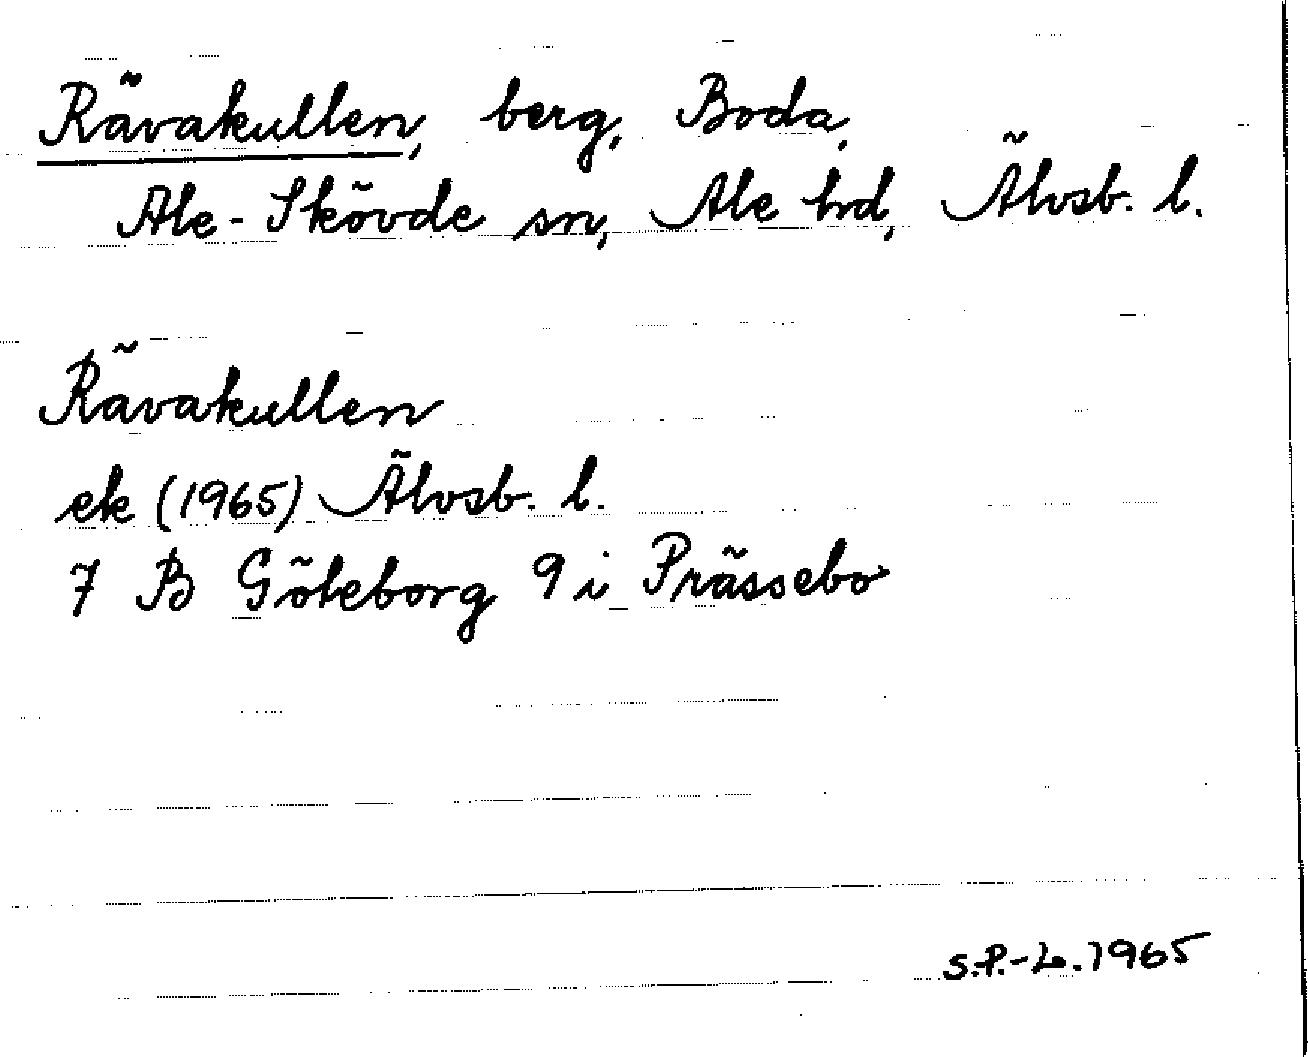 Rävakullen, berg, Boda,
Ale-Skövde sn, Ale hd, Älvsb. l.
Rävakullen
ek (1965) Älvsb. l.
7 B Göteborg 9 i Prässebo
S.P.-L. 1965